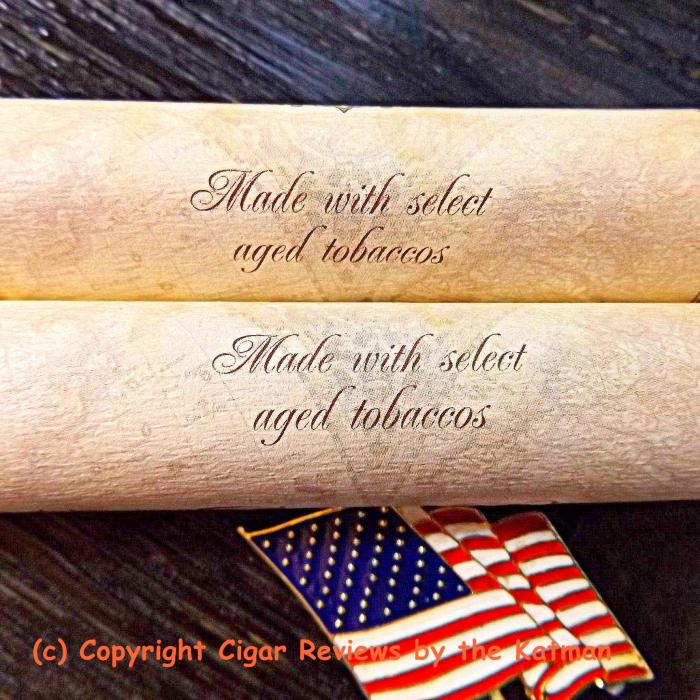 Made with select
aged tobaccos
Made with select
aged tobaccos
(c) Copyright Cigar Reviews by the Katman